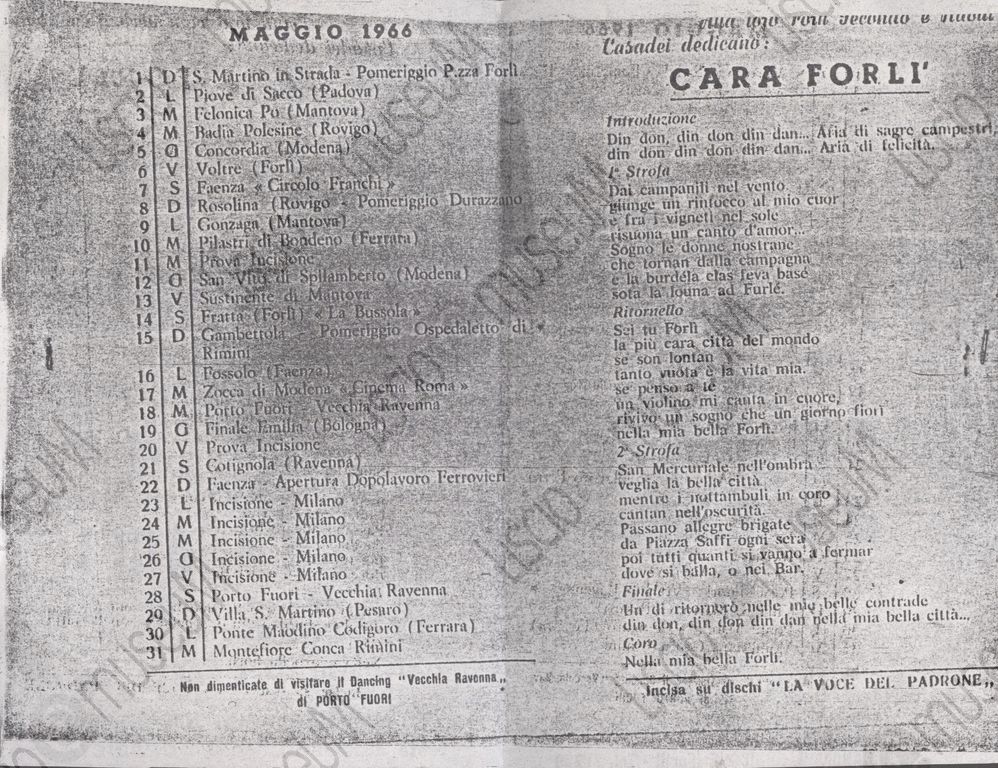 MAGGIO 1966
1 D S. Martino in Strada - Pomeriggio P.zza Forlì
2 L Piove di Sacco (Padova)
3 M Felonica Po (Mantova)
4 M Badia Polesine (Rovigo)
5 G Concordia (Modena)
6 V Voltre (Forlì)
7 S Faenza « Circolo Franchi »
8 D Rosolina (Rovigo - Pomeriggio Durazzano
9 L Gonzaga (Mantova)
10 M Pilastri di Bondeno (Ferrara)
11 M Prova Incisione
12 G San Vito di Spilamberto (Modena)
13 V Sustinente di Mantova
14 S Fratta (Forlì) « La Bussola »
15 D Gambettola - Pomeriggio Ospedaletto di
Rimini
16 L Fossolo (Faenza)
17 M Zocca di Modena « Cinema Roma »
18 M Porto Fuori - Vecchia Ravenna
19 G Finale Emilia (Bologna)
20 V Prova Incisione
21 S Cotignola (Ravenna)
22 D Faenza - Apertura Dopolavoro Ferrovieri
23 L Incisione - Milano
24 M Incisione - Milano
25 M Incisione - Milano
26 G Incisione - Milano
27 V Incisione - Milano
28 S Porto Fuori - Vecchia Ravenna
29 D Villa S. Martino (Pesaro)
30 L Ponte Maodino Codigoro (Ferrara)
31 M Montefiore Conca Rimini
Non dimenticate di visitare il Dancing "Vecchia Ravenna„
di PORTO FUORI
Secondo e
Casadei dedicano:
CARA FORLI'
Introduzione
Din don, din don din dan... Aria di sagre campestri
din don din don din dan... Aria di felicità.
1ª Strofa
Dai campanili nel vento
giunge un rintocco al mio cuor
e fra i vigneti nel sole
risuona un canto d'amor...
Sogno le donne nostrane
che tornan dalla campagna
e la burdéla clas feva basé
sota la louna ad Furlé.
Ritornello
Sei tu Forlì
la più cara città del mondo
se son lontan
tanto vuota è la vita mia.
se penso a te
un violino mi canta in cuore,
rivivo un sogno che un giorno fiorì
nella mia bella Forlì.
2ª Strofa
San Mercuriale nell'ombra
veglia la bella città
mentre i nottambuli in coro
cantan nell'oscurità.
Passano allegre brigate
da Piazza Saffi ogni sera
poi tutti quanti si vanno a fermar
dove si balla, o nei Bar.
Finale
Un dì ritornerò nelle mie belle contrade
din don, din don din dan nella mia bella città...
Coro
Nella mia bella Forlì.
Incisa su dischi "LA VOCE DEL PADRONE„
Liscio museuM